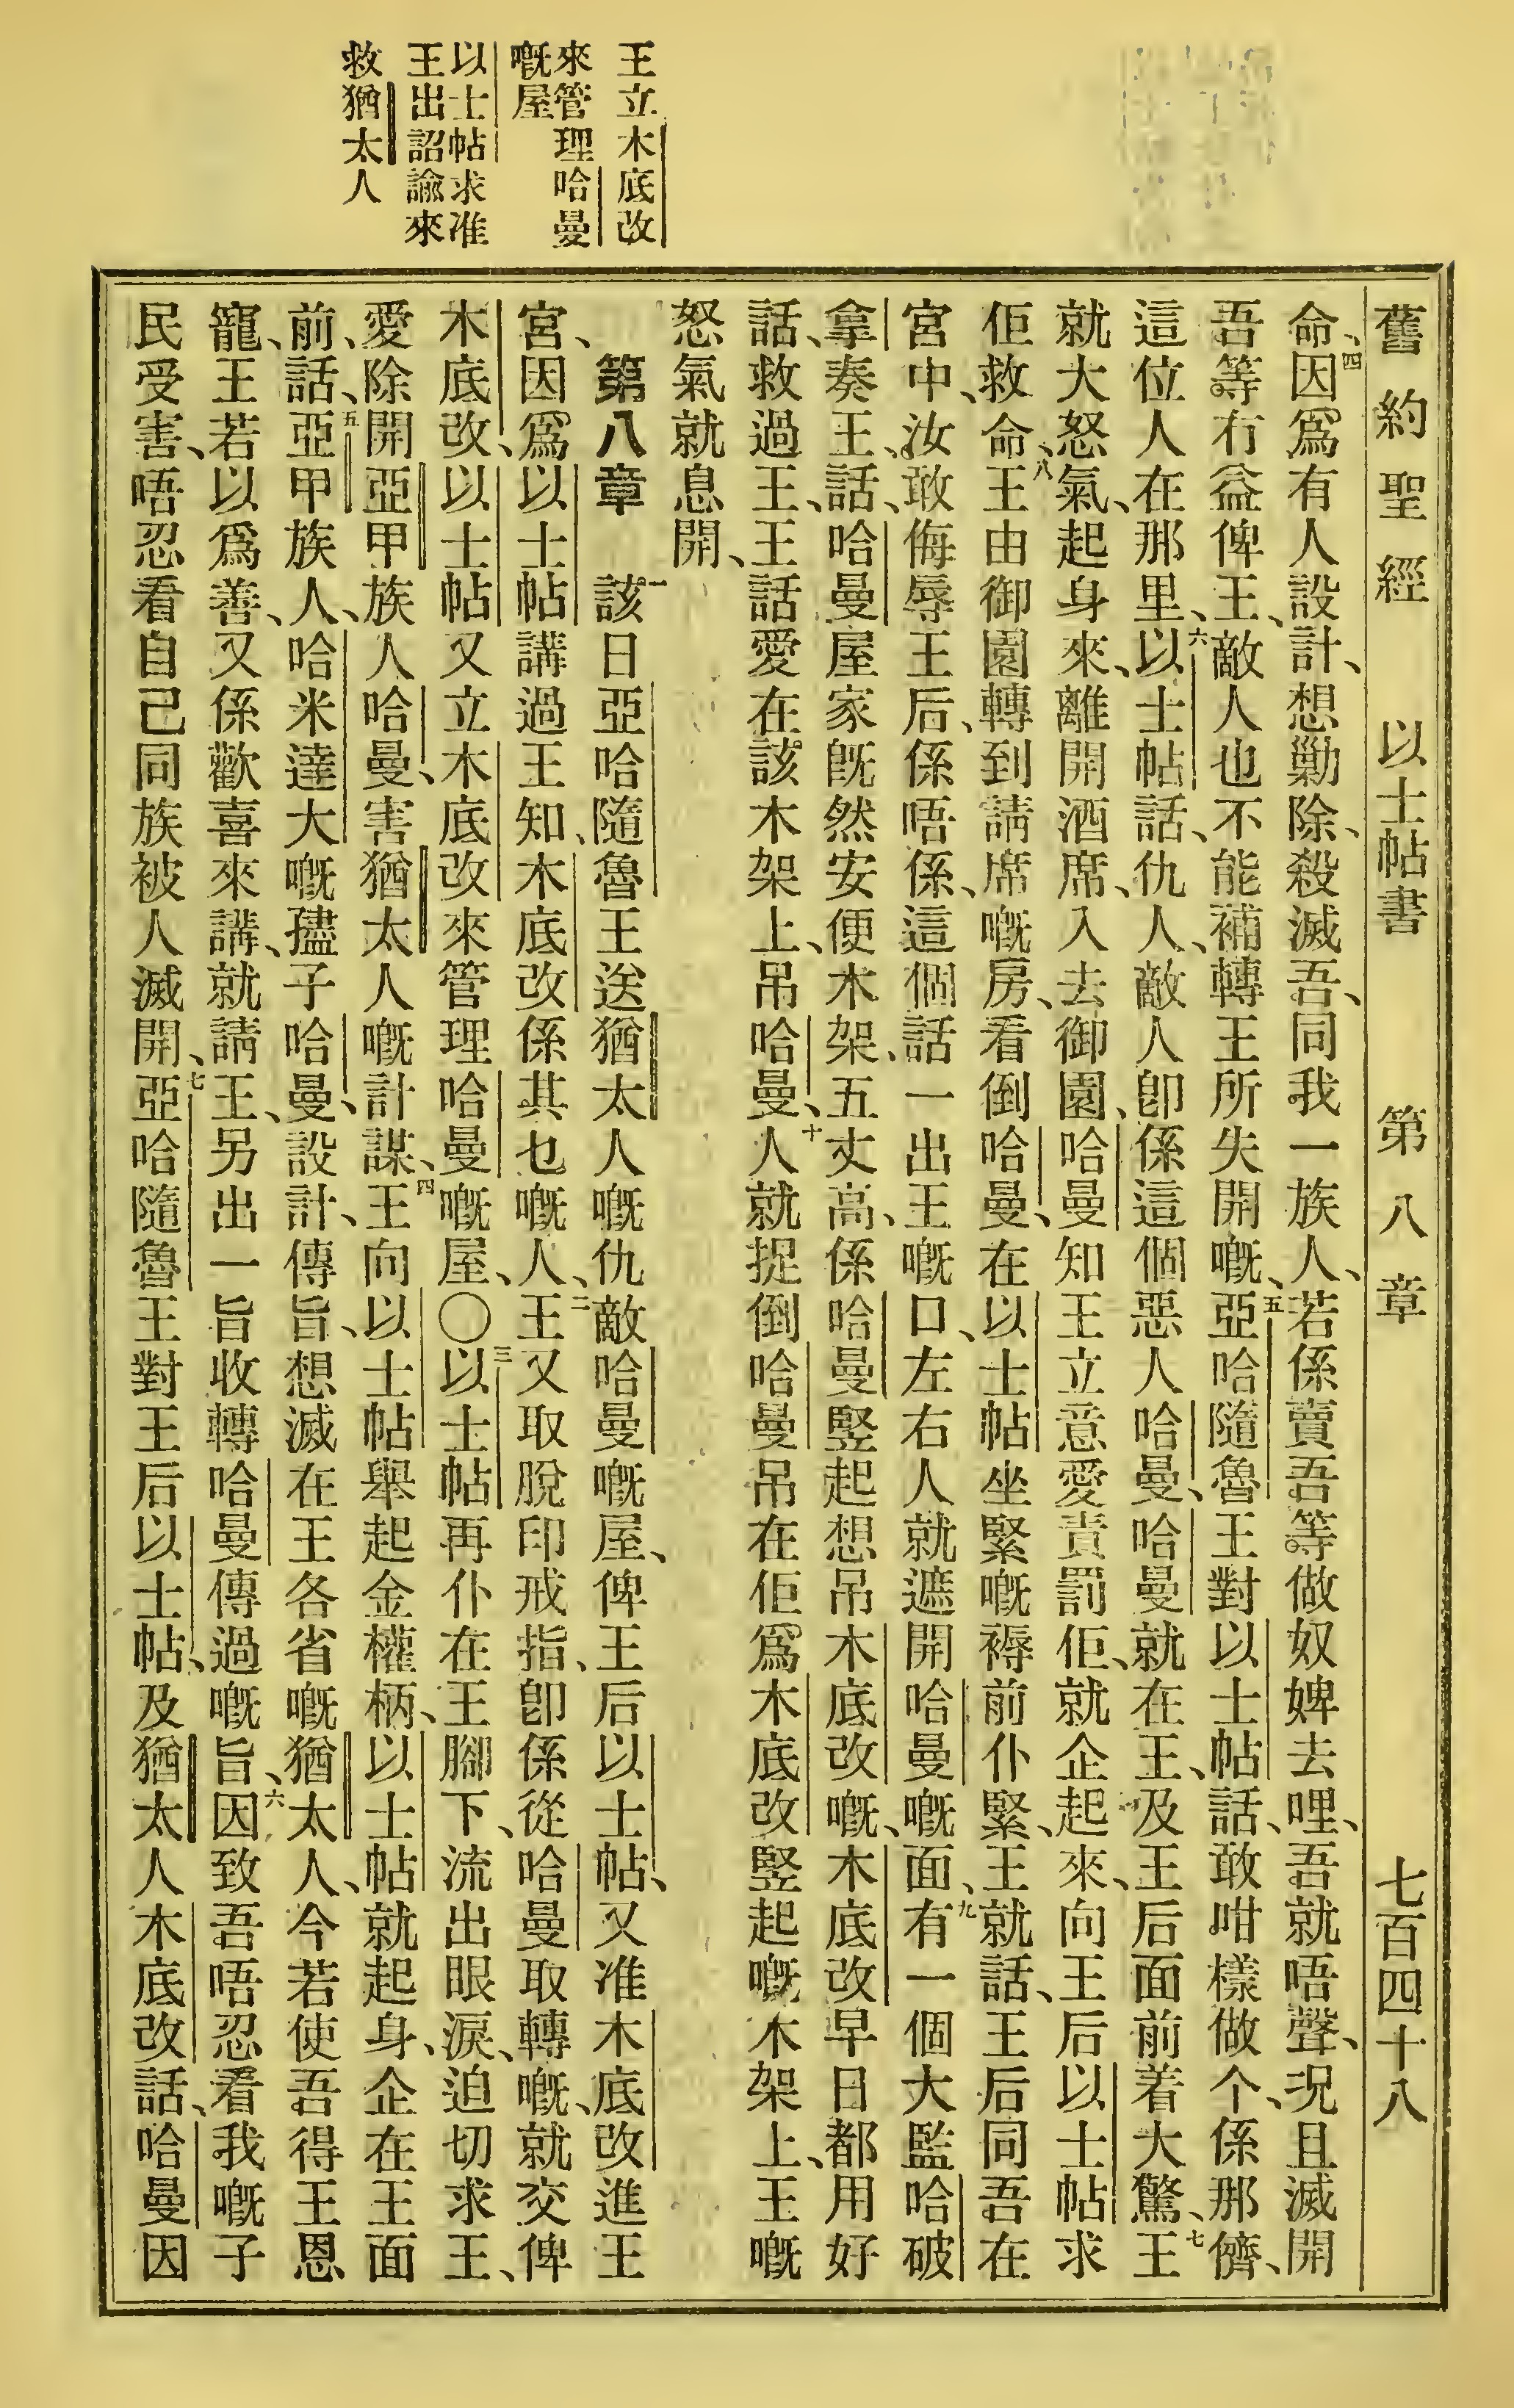 舊約聖經 以士帖書 第八章 七百四十八
命、四因爲有人設計、想勦除、殺滅吾、同我一族人、若係賣吾等做奴婢去哩、吾就唔聲、况且滅開
吾等冇益俾王、敵人也不能補轉王所失開嘅、五亞哈隨魯王對以士帖話、敢咁樣做个、係那儕、
這位人在那里、六以士帖話、仇人、敵人卽係這個惡人哈曼、哈曼就在王、及王后面前着大驚、七王
就大怒氣、起身來、離開酒席、入去御園、哈曼知王立意愛責罰佢、就企起來、向王后以士帖求
佢救命、八王由御園轉到請席嘅房、看倒哈曼、在以士帖坐緊嘅褥前仆緊、王就話、王后同吾在
宮中、汝敢侮辱王后、係唔係、這個話一出王嘅口、左右人就遮開哈曼嘅面、九有一個大監哈破
拿奏王、話、哈曼屋家旣然安便木架、五丈高、係哈曼竪起想吊木底改嘅、木底改早日都用好
話、救過王、王話愛在該木架上、吊哈曼、十人就捉倒哈曼吊在佢爲木底改竪起嘅木架上、王嘅
怒氣就息開、
第八章 一該日亞哈隨魯王送猶太人嘅仇敵哈曼嘅屋、俾王后以士帖、又准木底改進王
宮、因爲以士帖講過王知、木底改係其乜嘅人、二王又取脫印戒指、卽係從哈曼取轉嘅、就交俾
木底改、以士帖又立木底改來管理哈曼嘅屋、〇三以士帖再仆在王腳下、流出眼淚、迫切求王、
愛除開亞甲族人哈曼、害猶太人嘅計謀、四王向以士帖舉起金權柄、以士帖就起身、企在王面
前、話、五亞甲族人、哈米達大嘅孻子哈曼、設計、傳旨、想滅在王各省嘅猶太人、今若使吾得王恩
寵、王若以爲善、又係歡喜來講、就請王、另出一旨收轉哈曼傳過嘅旨、六因致吾唔忍看我嘅子
民受害、唔忍看自己同族被人滅開、七亞哈隨魯王對王后以士帖、及猶太人木底改話、哈曼因
王立木底改
來管理哈曼
嘅屋
以士帖求准
王出詔諭來
救猶太人